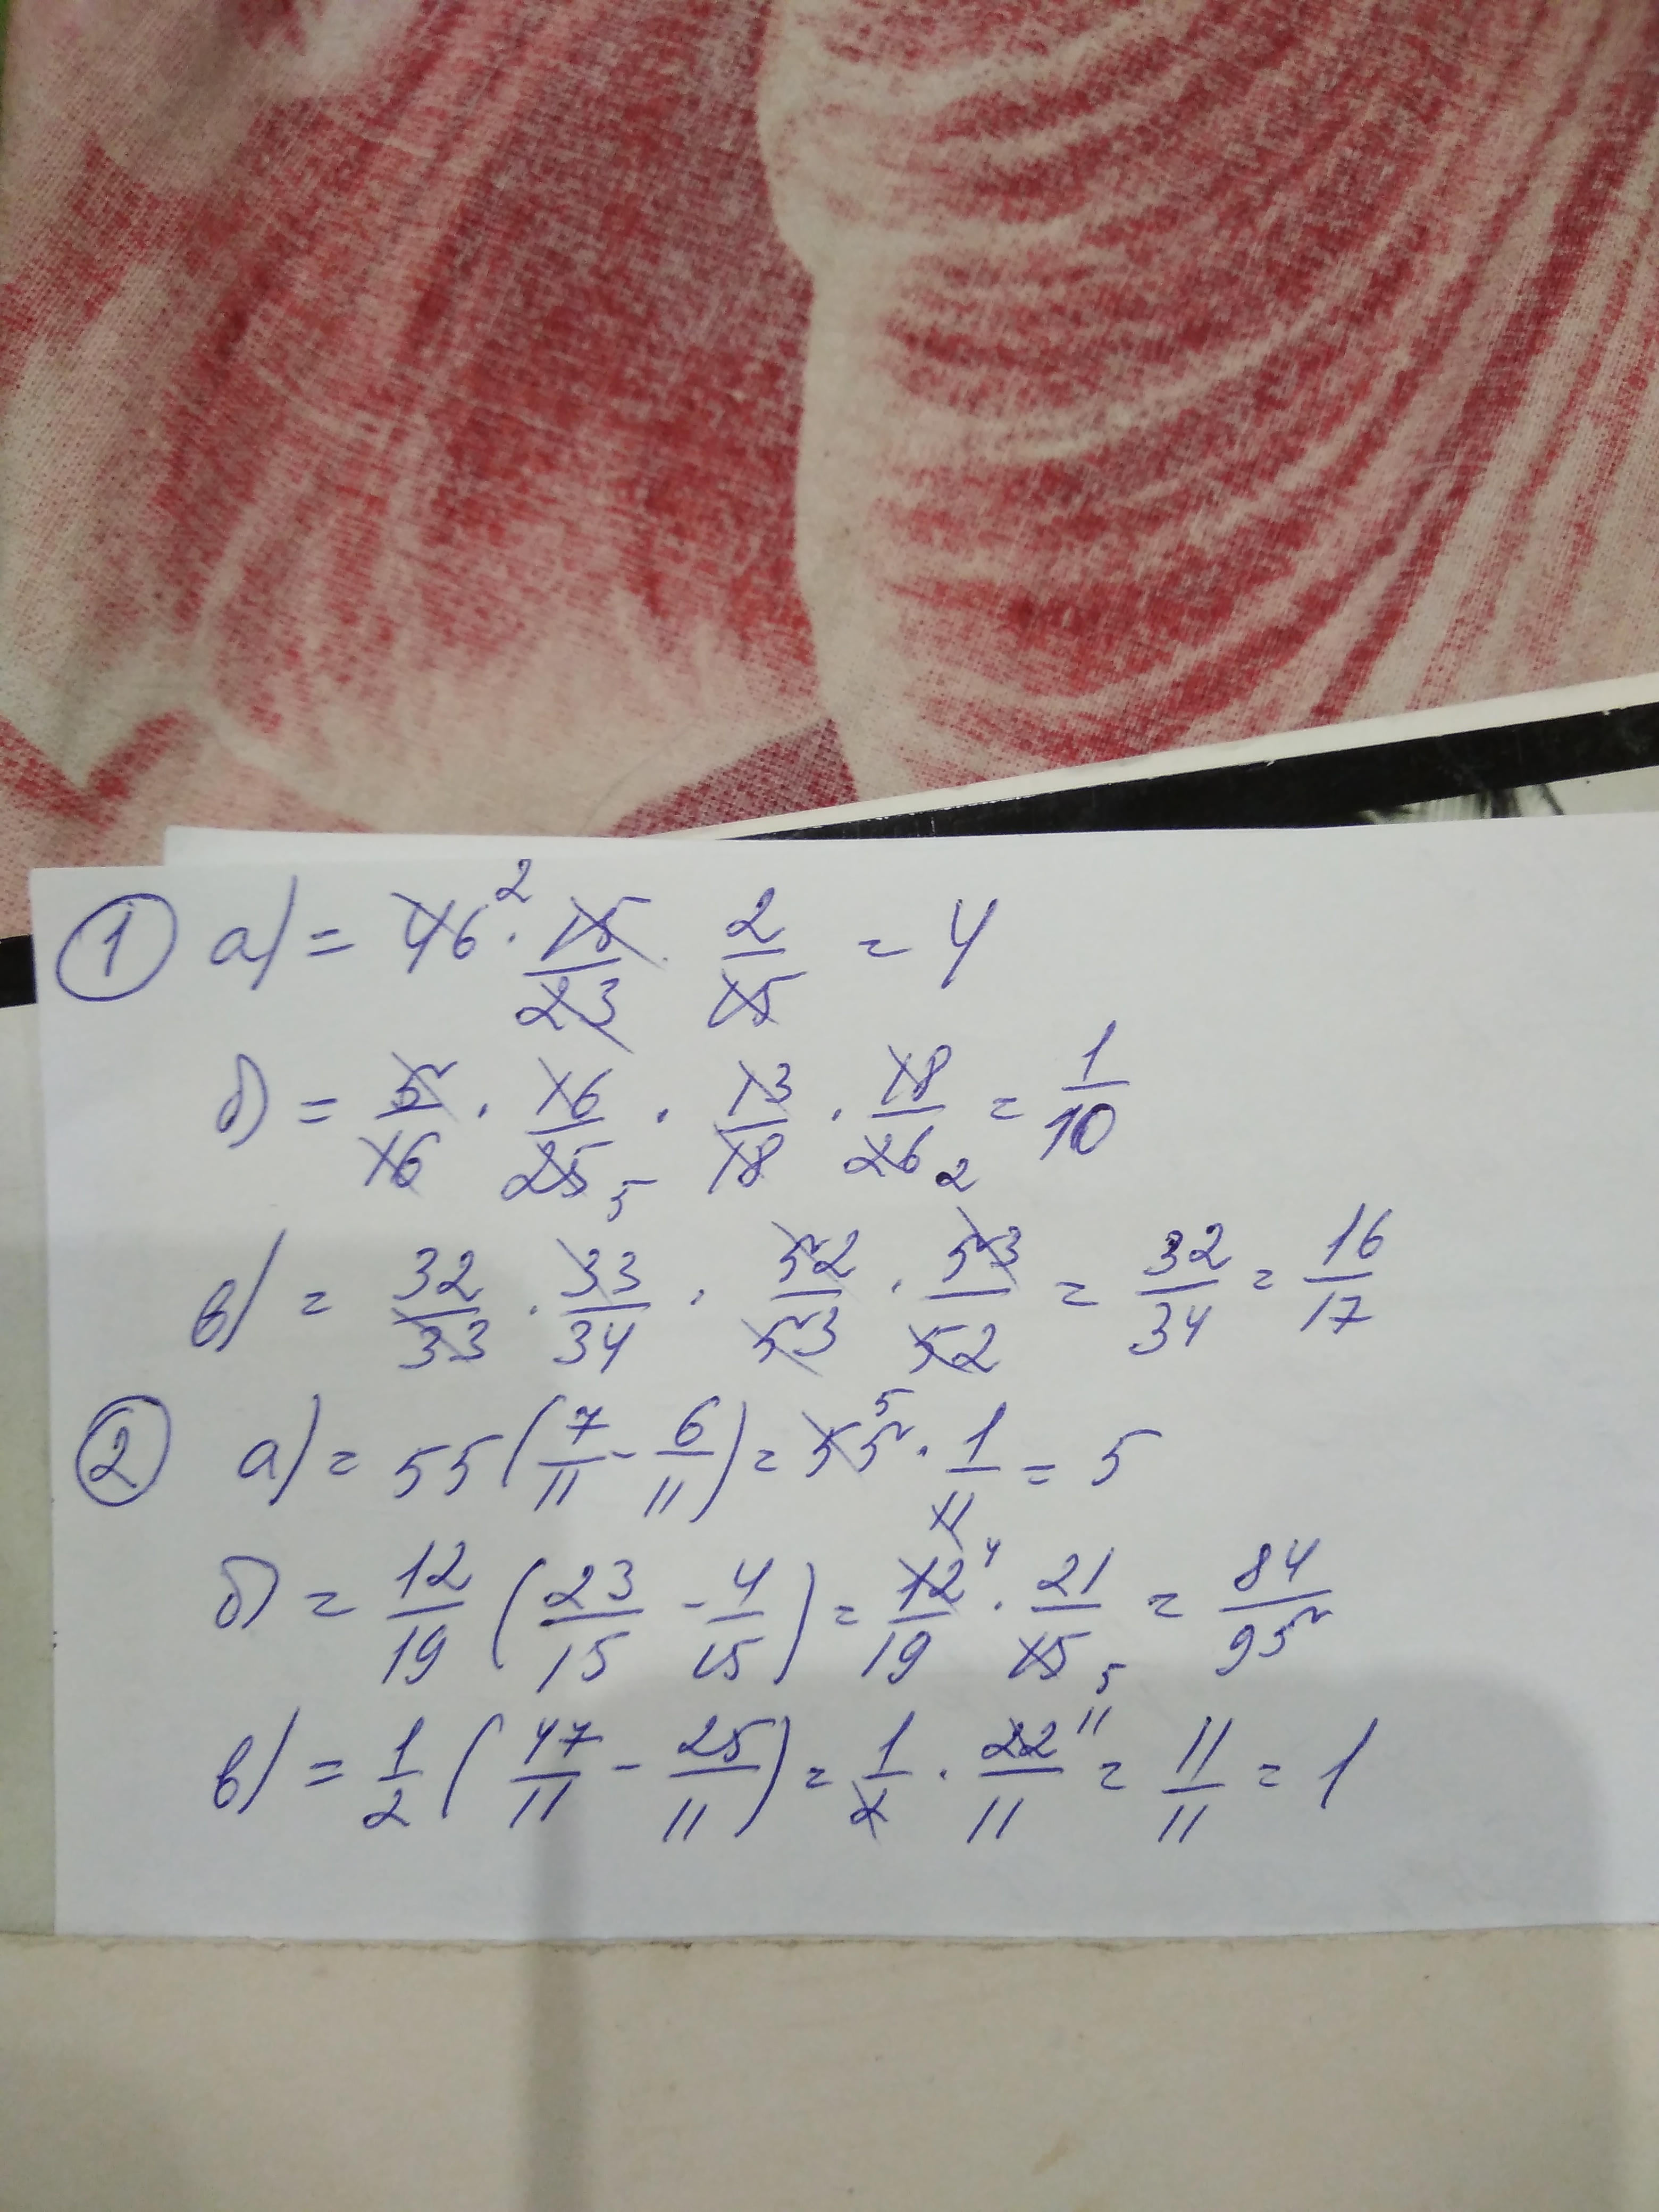 ① а) = 46² · 15/23 · 2/15 = 4
б) = 5/16 · 16/25 5 · 13/18 · 18/26 2 = 1/10
в) = 32/33 · 33/34 · 52/53 · 53/52 = 32/34 = 16/17
② а) = 55 (7/11 - 6/11) = 55⁵ · 1/11 = 5
б) = 12/19 (23/15 - 4/15) = 12⁴/19 · 21/15 5 = 84/95
в) = 1/2 (47/11 - 25/11) = 1/2 · 22¹¹/11 = 11/11 = 1